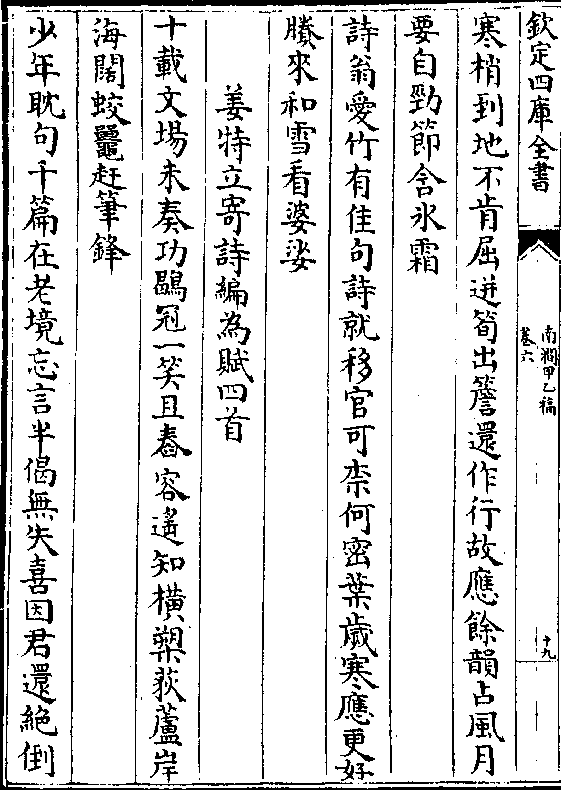 欽定四庫全書
南澗甲乙稿
卷六
十九
寒梢到地不肯屈迸筍出簷還作行故應餘韻占風月
要自勁節含氷霜
詩翁愛竹有佳句詩就移官可柰何密葉歲寒應更好
賸來和雪看婆娑
姜特立寄詩編為賦四首
十載文場未奏功鶡冠一笑且舂容遙知橫槊荻蘆岸
海闊蛟鼉赶筆鋒
少年耽句千篇在老境忘言半偈無失喜因君還絶倒